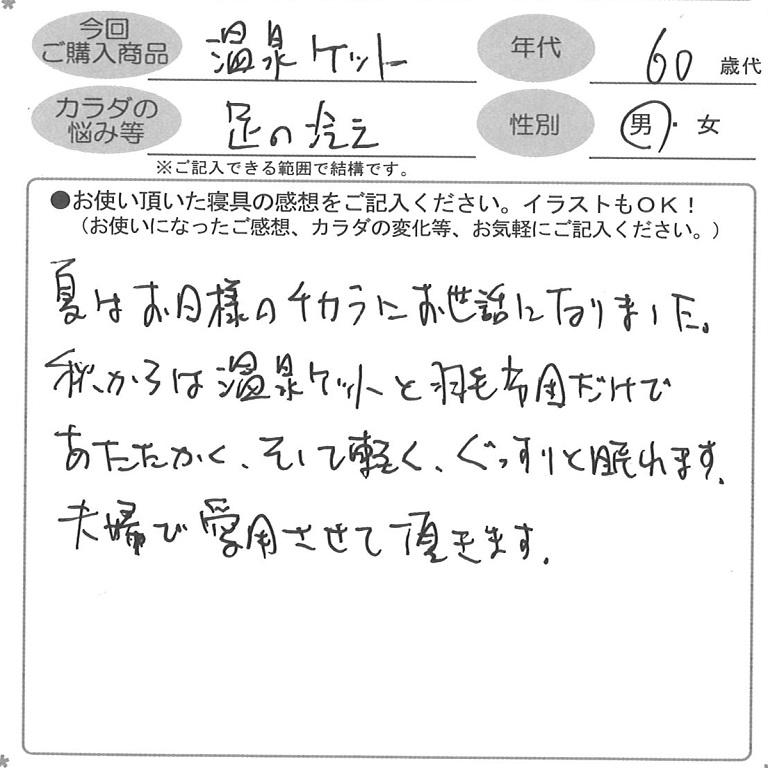 今回
ご購入商品
温泉ケット
年代
60歳代
カラダの
悩み等
足の冷え
性別
男・女
※ご記入できる範囲で結構です。
●お使い頂いた寝具の感想をご記入ください。イラストもOK！
（お使いになったご感想、カラダの変化等、お気軽にご記入ください。）
夏はお日様のチカラにお世話になりました。
秋からは温泉ケットと羽毛布団だけで
あたたかく、そして軽く、ぐっすりと眠れます。
夫婦で愛用させて頂きます。